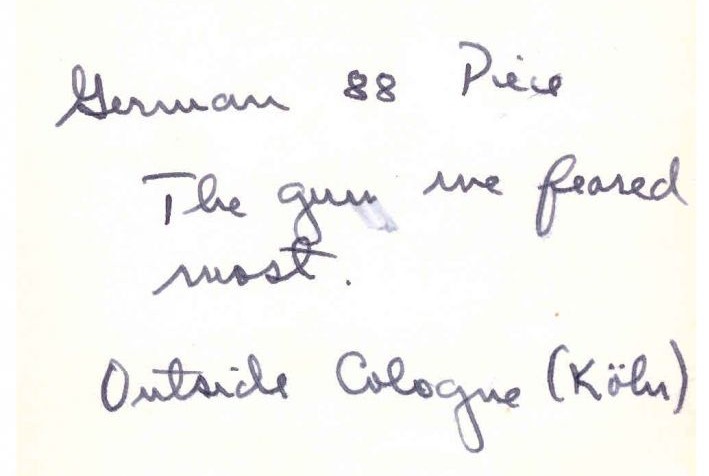 German 88 Piece
The gun we feared
most.
Outside Cologne (Köln)